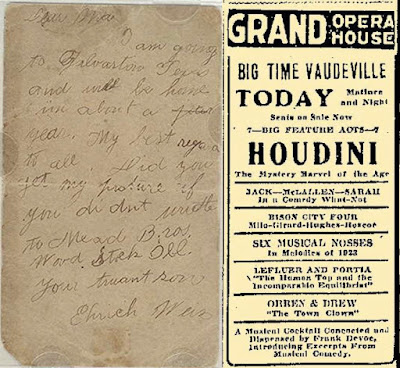 Dear Ma
I am going
to Galvaston Texas
and will be home
in about a
year. My best regards
to all. Did you
get my picture if
you didnt write
to Mead Bros.
Wood Stck Ill.
Your truant son
Ehrich Weiss
GRAND OPERA HOUSE
BIG TIME VAUDEVILLE
TODAY Matinee and Night
Seats on Sale Now
7—BIG FEATURE ACTS—7
HOUDINI
The Mystery Marvel of the Age
JACK—McLALLEN—SARAH
In a Comedy What-Not
BISON CITY FOUR
Milo-Girard-Hughes-Roscoe
SIX MUSICAL NOSSES
In Melodies of 1923
LEFLUER AND PORTIA
"The Human Top and the
Incomparable Equilibrist"
ORREN & DREW
"The Town Clown"
A Musical Cocktail Concocted and
Dispensed by Frank Devoe,
Introducing Excerpts From
Musical Comedy.